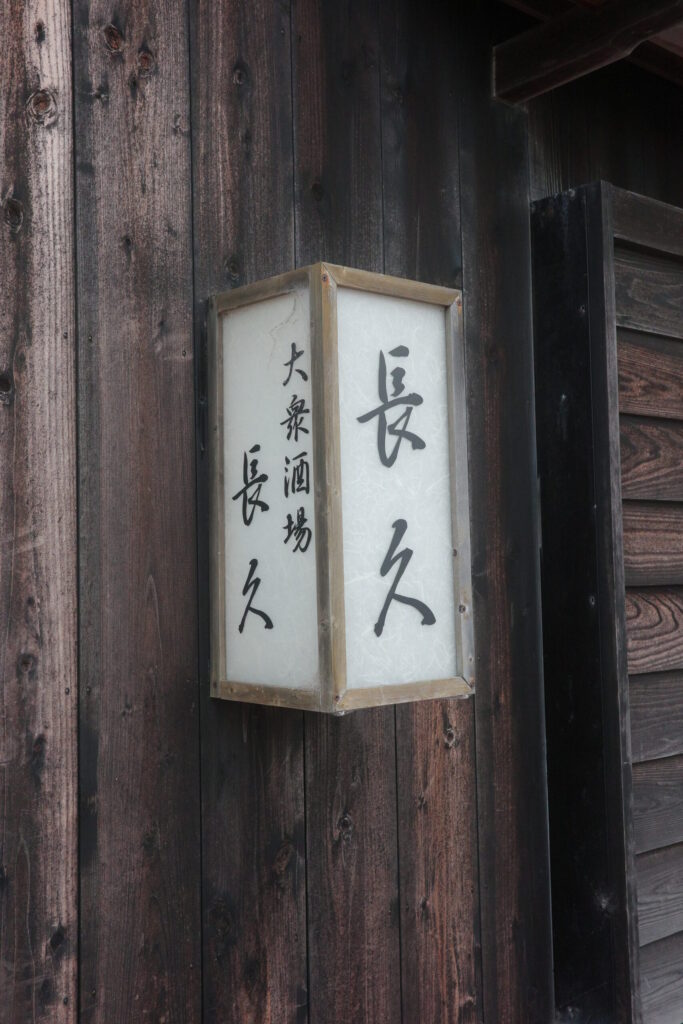 大衆酒場
長久
長久